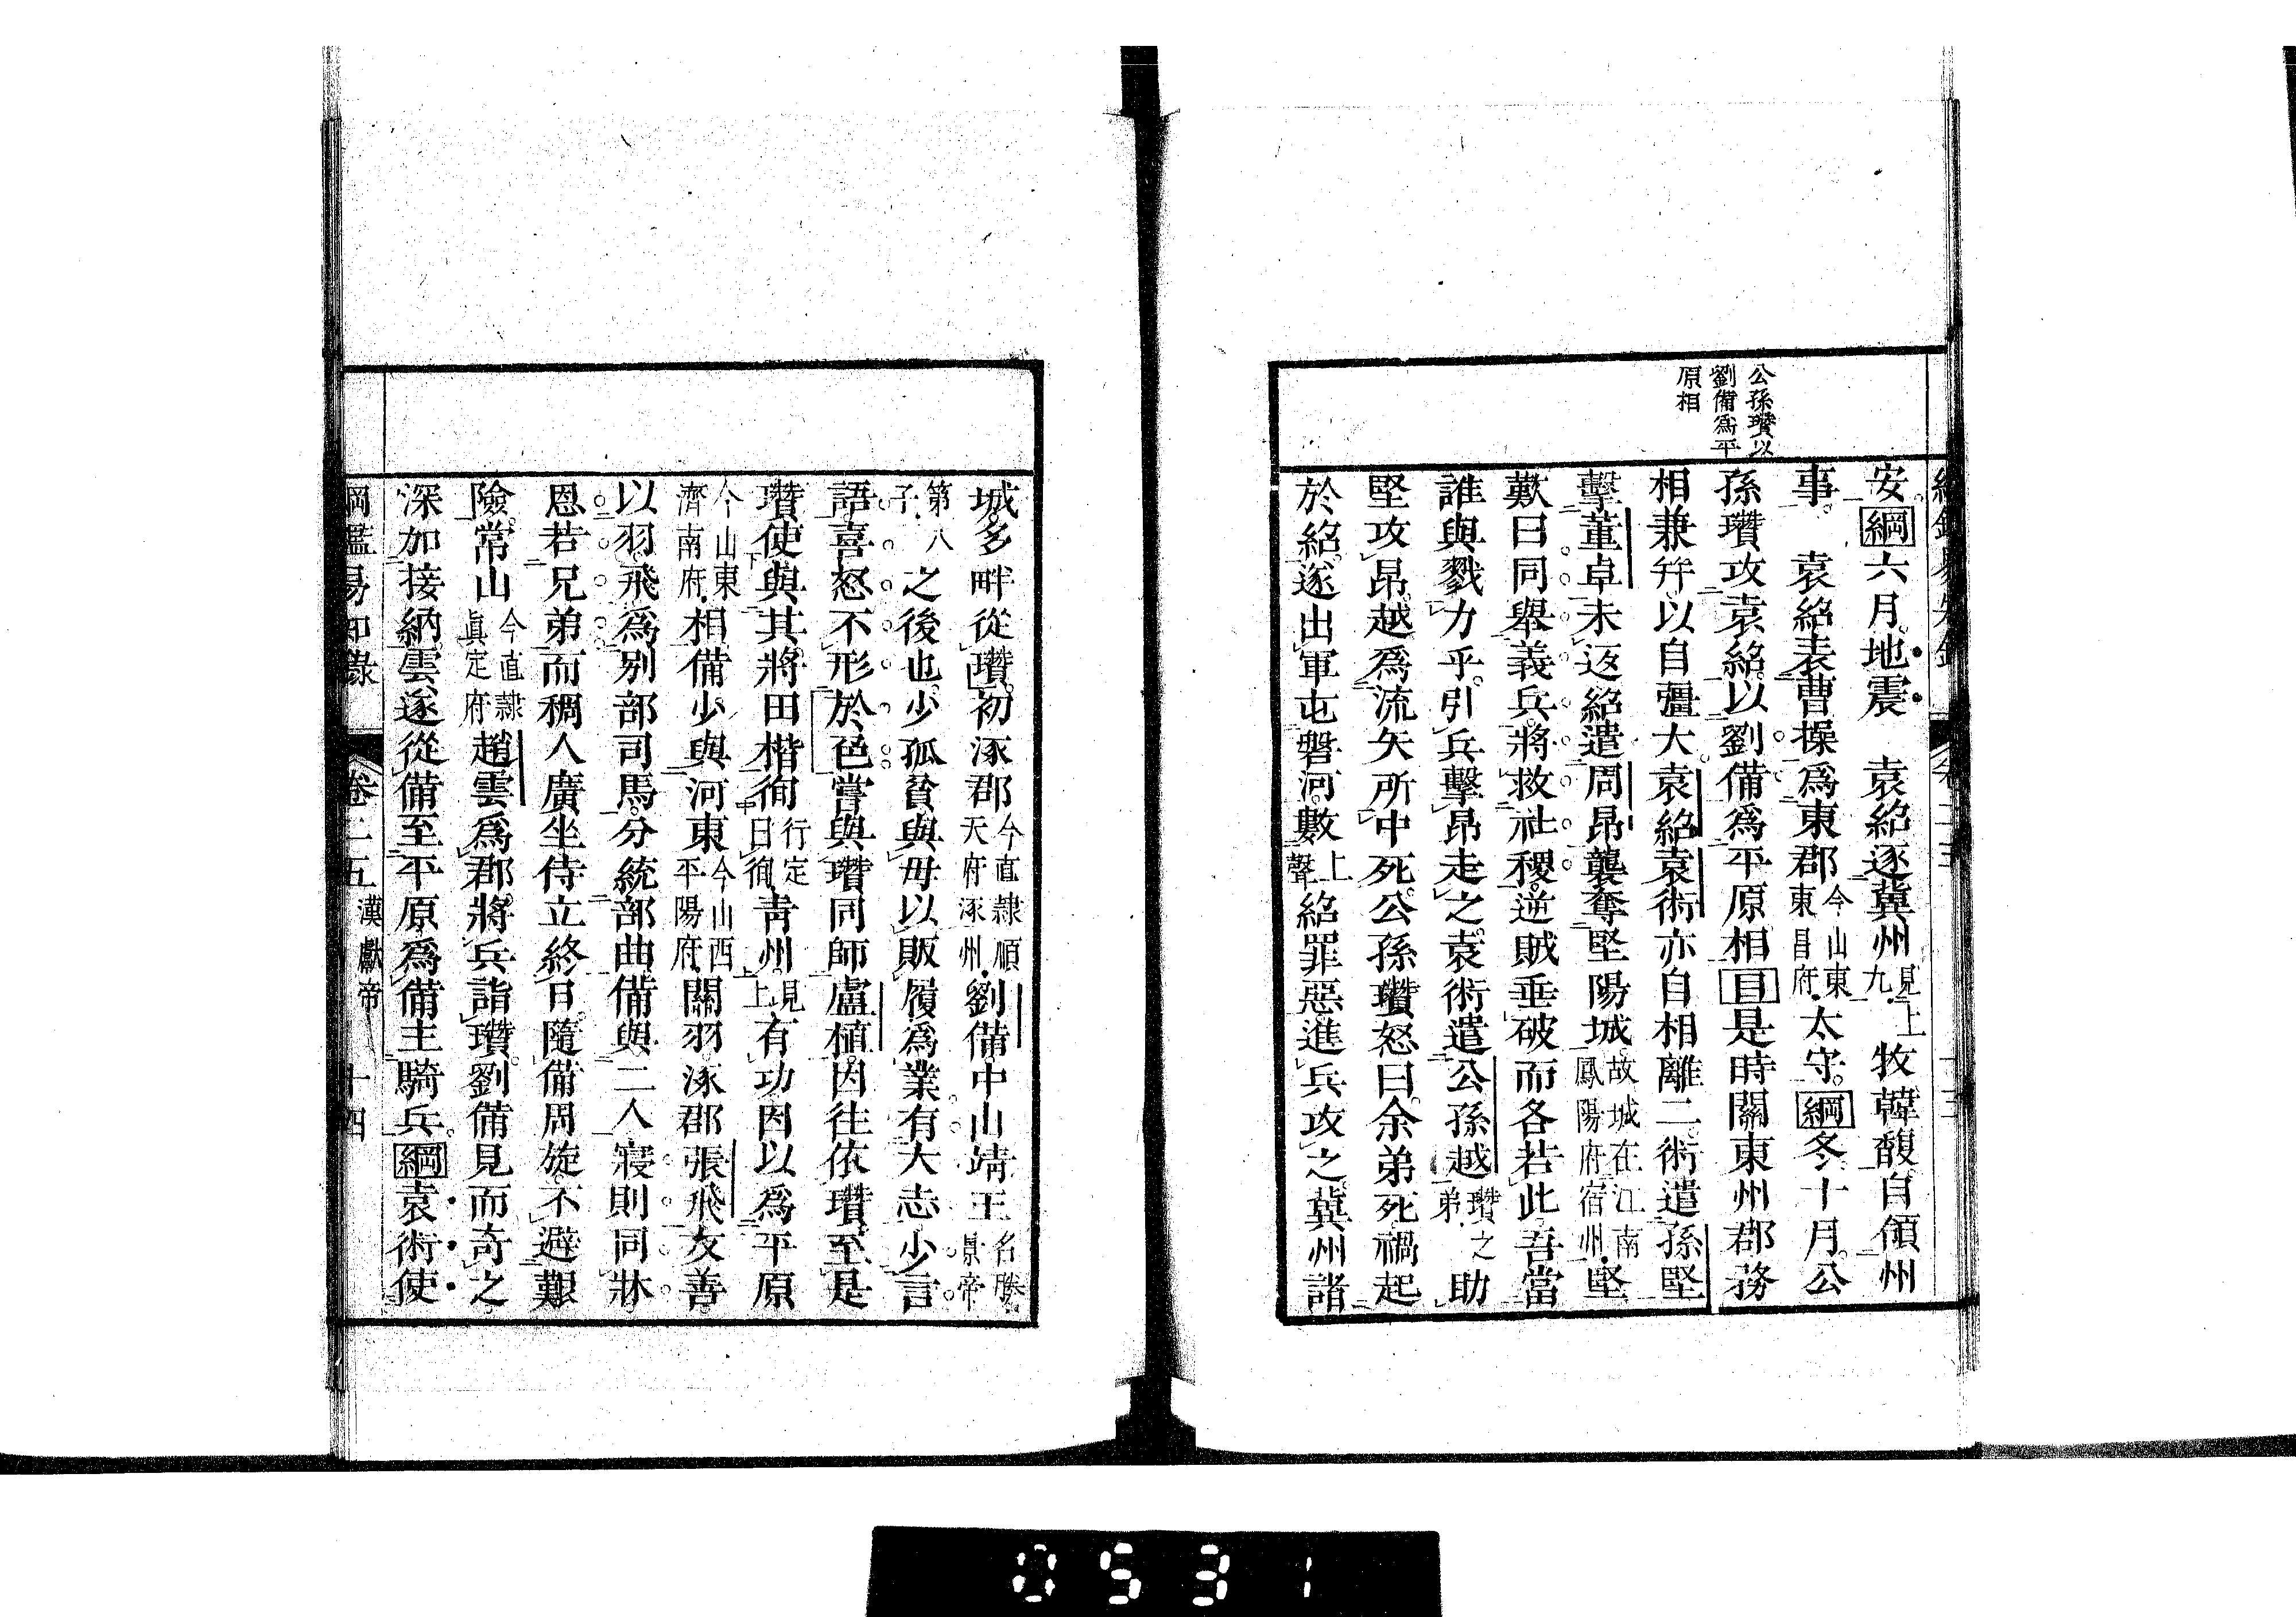 公孫瓚以
劉備爲平
原相
安。綱六月。地震　袁紹逐冀州見上九。牧韓馥自領州
事。　袁紹表曹操爲東郡今山東東昌府。太守。綱冬。十月。公
孫瓚攻袁紹。以劉備爲平原相目是時關東州郡務
相兼幷。以自彊大袁紹袁術亦自相離二。術遣孫堅
擊董卓未返紹遣周昂襲奪堅陽城。故城在江南鳳陽府宿州。堅
歎曰同舉義兵。將救社稷。逆賊垂破而各若此。吾當
誰與戮力乎。引兵擊昂走之。袁術遣公孫越瓚之弟。助
堅攻昂。越爲流矢所中死。公孫瓚怒曰。余弟死禍起
於紹。遂出軍屯磐河。數上聲紹罪惡。進兵攻之。冀州諸
城。多畔從瓚。初涿郡今直隸順天府涿州。劉備。中山靖王名勝。景帝
第八子。之後也。少孤貧與母以販履爲業。有大志少言
語。喜怒不形於色嘗與瓚同師盧植。因往依瓚。至是
瓚使與其將田楷徇行定曰徇青州。見上有功因以爲平原
今山東濟南府。相備。少與河東今山西平陽府。關羽。涿郡張飛友善
以羽飛爲別部司馬。分統部曲備與二人寢則同牀。
恩若兄弟而稠人廣坐侍立終日。隨備周旋。不避艱
險。常山今直隸眞定府趙雲爲郡。將兵詣瓚。劉備見而奇之
深加接納。雲遂從備至平原爲備主騎兵。綱袁術使
綱鑑易知錄　卷二五　漢獻帝　十四